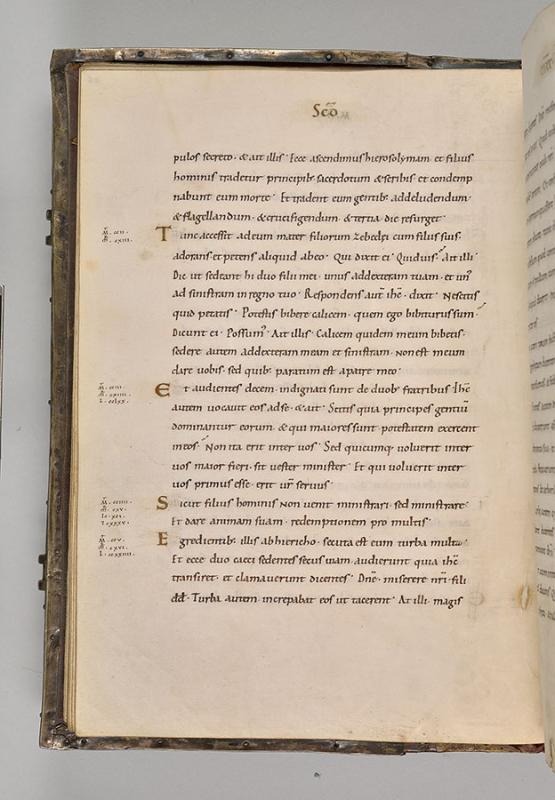 Scdo
pulos secreto. & ait illis. Ecce ascendimus hierosolymam. et filius
hominis tradetur principib; sacerdotum & scribis et condemp
nabunt eum morte. Et tradent eum gentib; ad deludendum.
& flagellandum. & crucifigendum. & tertia die resurget.
Tunc accessit ad eum mater filiorum zebedei cum filiis suis.
adorans et petens aliquid ab eo. Qui dixit ei. Quid uis? Ait illi.
Dic ut sedeant hi duo filii mei. unus ad dexteram tuam. et un'
ad sinistram in regno tuo. Respondens aut̄ ih̄c. dixit. Nescitis
quid petatis. Potestis bibere calicem. quem ego bibiturus sum?
Dicunt ei. Possum'. Ait illis. Calicem quidem meum bibetis.
sedere autem ad dexteram meam et sinistram. non est meum
dare uobis. sed quib; paratum est a patre meo.
Et audientes decem. indignati sunt de duob; fratribus. Ih̄c
autem uocauit eos ad se. & ait. Scitis quia principes gentiū
dominantur eorum. & qui maiores sunt potestatem exercent
in eos. Non ita erit inter uos. Sed quicumq; uoluerit inter
uos maior fieri. sit uester minister. Et qui uoluerit inter
uos primus esse. erit ur̄ seruus.
Sicut filius hominis non uenit ministrari. sed ministrare.
Et dare animam suam. redemptionem pro multis.
Egredientib; illis ab hiericho. secuta est eum turba multa.
Et ecce duo caeci sedentes secus uiam. audierunt quia ih̄c
transiret. et clamauerunt dicentes. Dn̄e. miserere nr̄i. fili
dd̄. Turba autem increpabat eos ut tacerent. At illi. magis